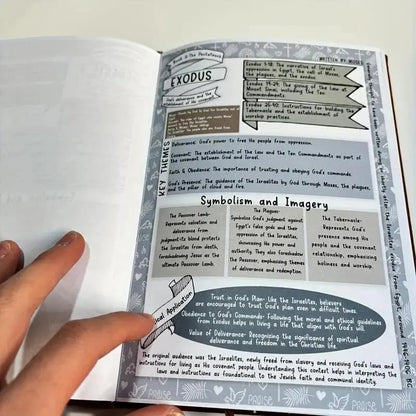 Book 2: The Pentateuch
WRITTEN BY: MOSES
EXODUS
God's deliverance and the
establishment of His covenant.
Exodus 1-18: The narrative of Israel's
oppression in Egypt, the call of Moses,
the plagues, and the exodus
Exodus 19-24: The giving of the Law at
Mount Sinai, including the Ten
Commandments
Exodus 25-40: Instructions for building the
Tabernacle and the establishment of
worship practices.
KEY THEMES
Deliverance: God's power to free His people from oppression.
Covenant: The establishment of the Law and the Ten Commandments as part of
the covenant between God and Israel.
Faith & Obedience: The importance of trusting and obeying God's commands.
God's Presence: The guidance of the Israelites by God through Moses, the plagues,
and the pillar of cloud and fire.
Symbolism and Imagery
The Passover Lamb:
Represents salvation and
deliverance from
judgment-its blood protects
the Israelites from death,
foreshadowing Jesus as the
ultimate Passover Lamb.
The Plagues:
Symbolize God's judgment against
Egypt's false gods and their
oppression of the Israelites,
showcasing His power and
authority. They also foreshadow
the Passover, emphasizing themes
of deliverance and redemption.
The Tabernacle:
Represents God's
presence among His
people and the covenant
relationship, emphasizing
holiness and worship.
Application
Trust in God's Plan- Like the Israelites, believers
are encouraged to trust God's plan even in difficult times.
Obedience to God's Commands- Following the moral and ethical guidelines
from Exodus helps in living a life that aligns with God's will.
Value of Deliverance- Recognizing the significance of spiritual
deliverance and freedom in the Christian life.
The original audience was the Israelites, newly freed from slavery and receiving God's laws and
instructions for living as His covenant people. Understanding this context helps in interpreting the
laws and instructions as foundational to the Jewish faith and communal identity.
PRAISE
PRAISE